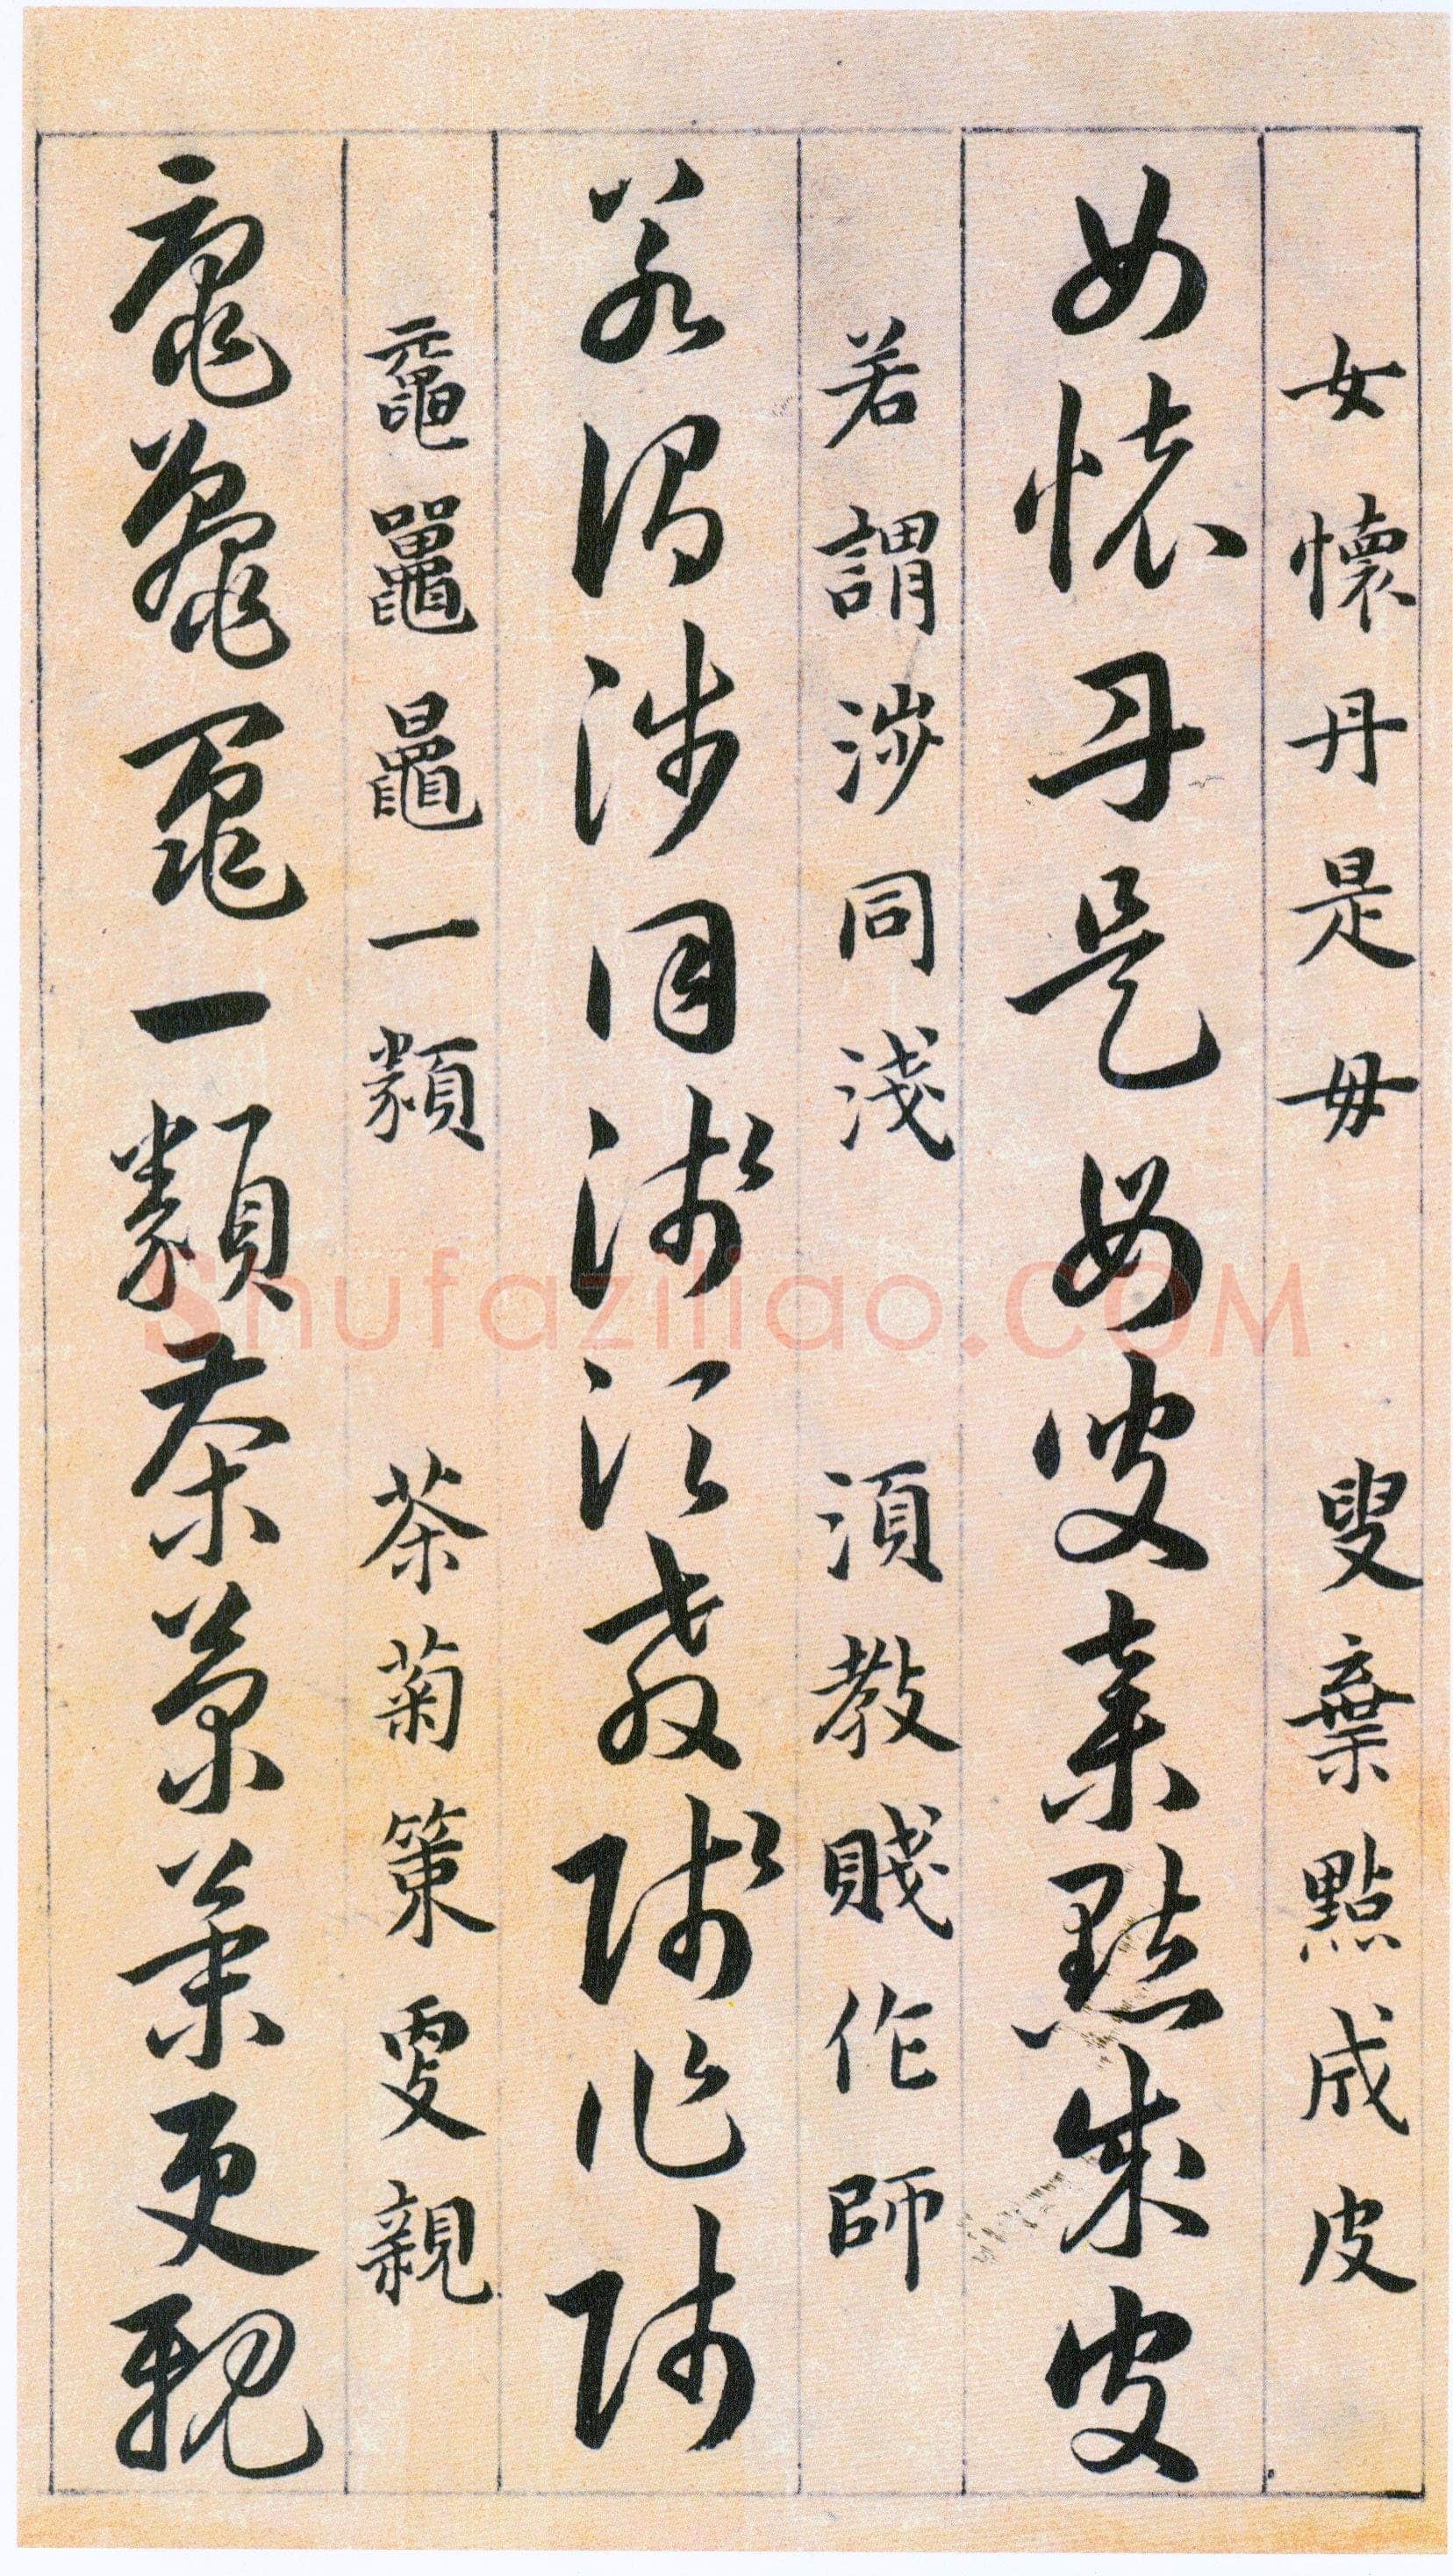 女懷丹是母　叟棄點成皮
女懷丹是母叟棄點成皮
若謂涉同淺　須教賤作師
若謂涉同淺須教賤作師
黿鼉鼂一類　茶菊策更親
黿鼉鼂一類茶菊策更親
Shufaziliao.COM